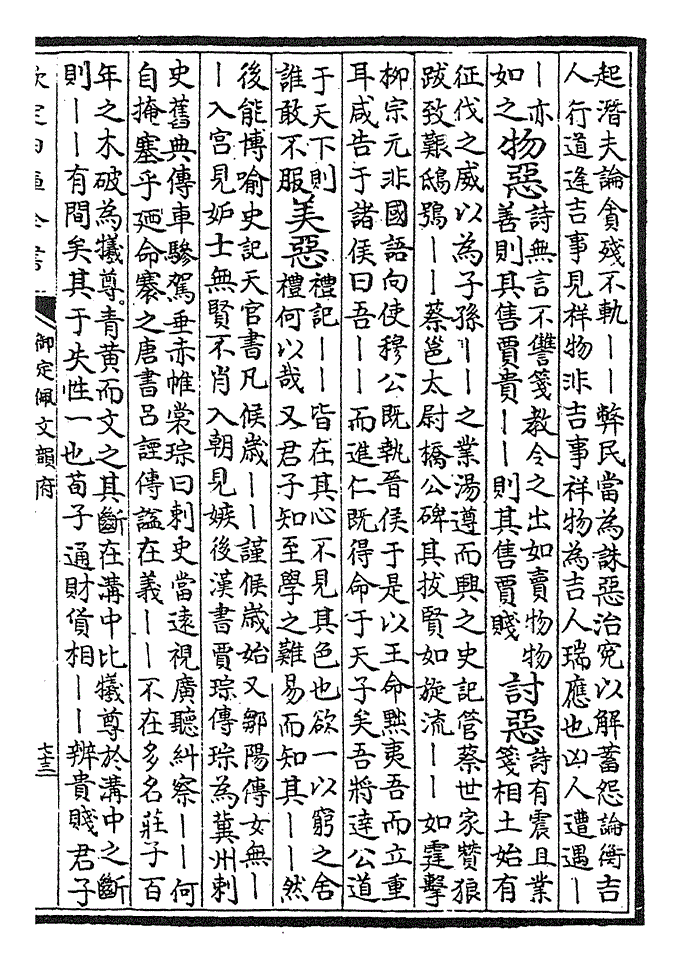 起潛夫論貪殘不軌——弊民當為誅惡治冤以解蓄怨論衡吉
人行道逢吉事見祥物非吉事祥物為吉人瑞應也凶人遭遇—
—亦
如之
物惡
詩無言不讐箋教令之出如賣物物
善則其售賈貴——則其售賈賤
討惡
詩有震且業
箋相土始有
征伐之威以為子孫——之業湯遵而興之史記管蔡世家贊狼
跋致艱鴟鴞——蔡邕太尉橋公碑其拔賢如旋流——如霆擊
柳宗元非國語向使穆公既執晉侯于是以王命黜夷吾而立重
耳咸告于諸侯曰吾——而進仁既得命于天子矣吾將達公道
于天下則
誰敢不服
美惡
禮記——皆在其心不見其色也欲一以窮之舍
禮何以哉 又君子知至學之難易而知其——然
後能博喻史記天官書凡候歲——謹候歲始又鄒陽傳女無—
—入宮見妬士無賢不肖入朝見嫉後漢書賈琮傳琮為冀州刺
史舊典傳車驂駕垂赤帷裳琮曰刺史當遠視廣聽糾察——何
自掩塞乎廼命褰之唐書呂諲傳諡在義——不在多名莊子百
年之木破為犧尊。青黃而文之其斷在溝中比犧尊於溝中之斷
則——有間矣其于失性一也荀子通財貨相——辨貴賤君子
欽定四庫全書
御定佩文韻府
七十三